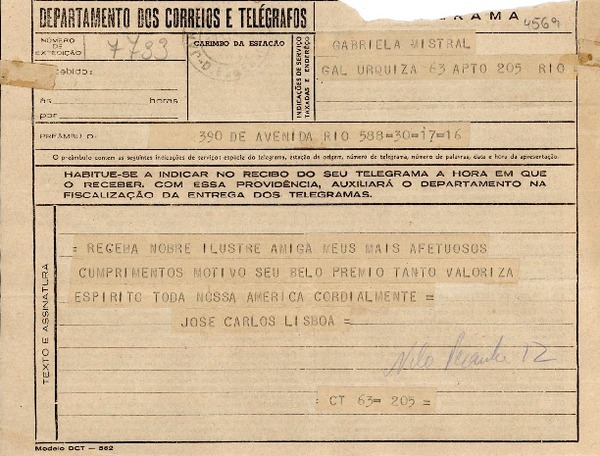 DEPARTAMENTO DOS CORREIOS E TELÉGRAFOS
GRAMA
4569
NÚMERO DE EXPEDIÇÃO
7783
CARIMBO DA ESTAÇÃO
INDICAÇÕES DE SERVIÇO TAXADAS E ENDERÊÇO
GABRIELA MISTRAL
GAL URQUIZA 63 APTO 205 RIO
cebido:
às horas
por
PREÂMBULO:
390 DE AVENIDA RIO 588=30=17=16
O preâmbulo contem as seguintes indicações de serviço: espécie do telegrama, estação de origem, número do telegrama, número de palavras, data e hora da apresentação.
HABITUE-SE A INDICAR NO RECIBO DO SEU TELEGRAMA A HORA EM QUE
O RECEBER. COM ESSA PROVIDÊNCIA, AUXILIARÁ O DEPARTAMENTO NA
FISCALIZAÇÃO DA ENTREGA DOS TELEGRAMAS.
TEXTO E ASSINATURA
= RECEBA NOBRE ILUSTRE AMIGA MEUS MAIS AFETUOSOS
CUMPRIMENTOS MOTIVO SEU BELO PREMIO TANTO VALORIZA
ESPIRITO TODA NOSSA AMERICA CORDIALMENTE =
JOSE CARLOS LISBOA =
Nilo Peçanha 12
CT 63= 205 =
Modelo DCT — 562